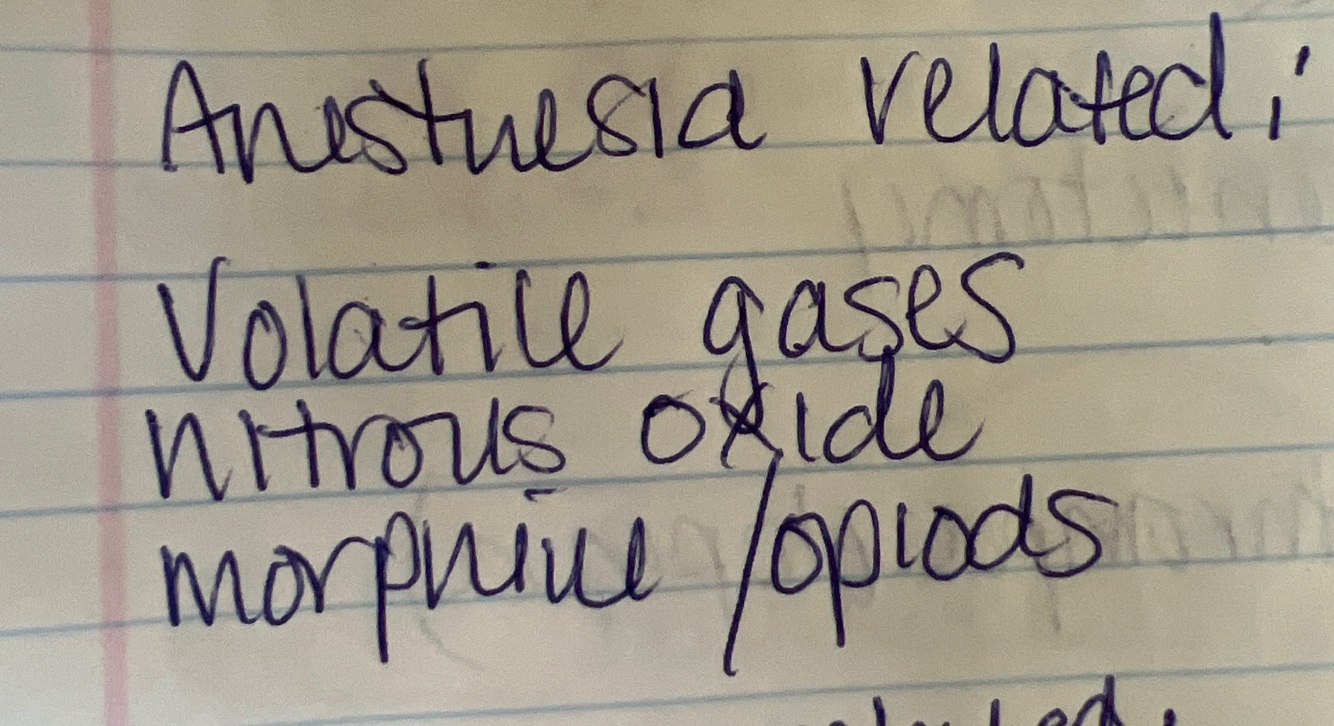 Anesthesia related:
Volatile gases
nitrous oxide
morphine /opiods